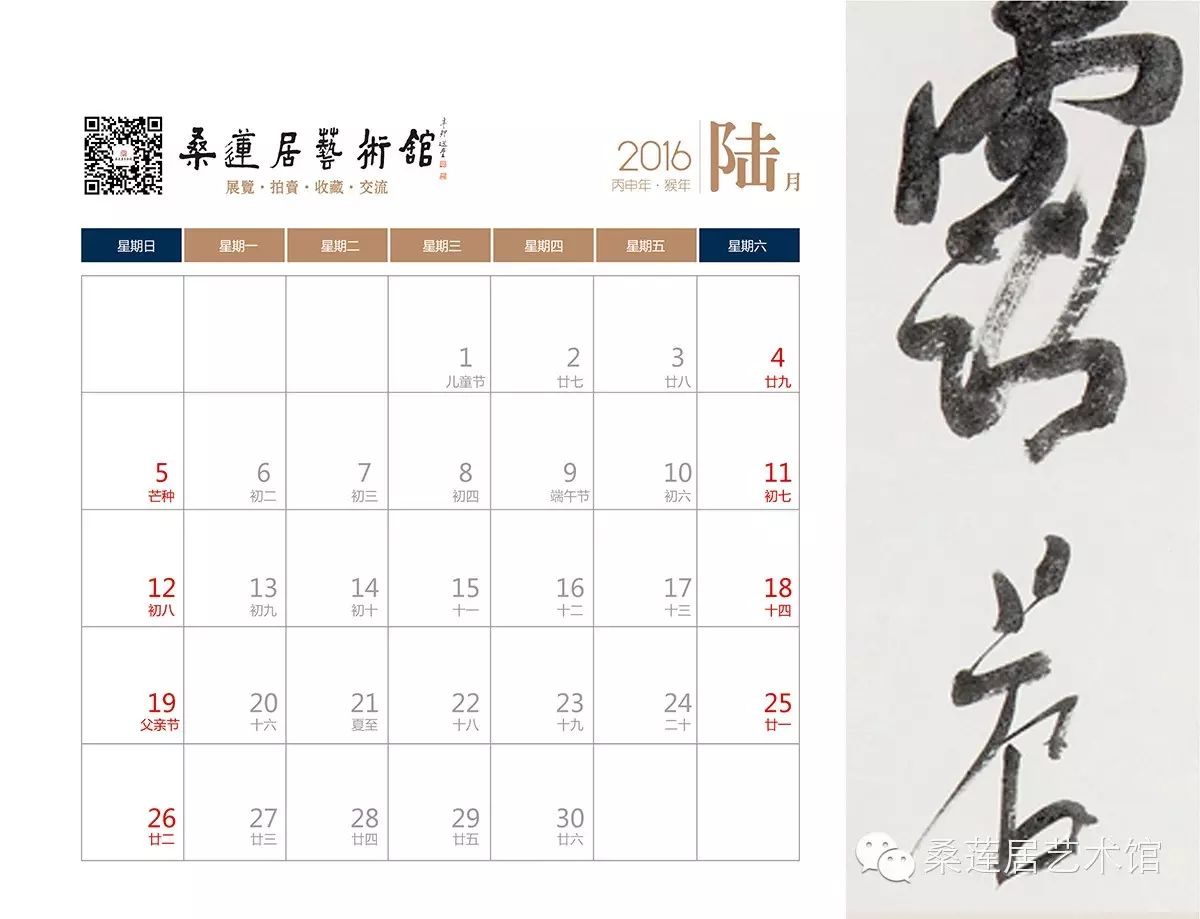 桑蓮居藝術館
展覽·拍賣·收藏·交流
2016
丙申年·猴年
陆月
星期日 星期一 星期二 星期三 星期四 星期五 星期六
1 2 3 4
儿童节 廿七 廿八 廿九
5 6 7 8 9 10 11
芒种 初二 初三 初四 端午节 初六 初七
12 13 14 15 16 17 18
初八 初九 初十 十一 十二 十三 十四
19 20 21 22 23 24 25
父亲节 十六 夏至 十八 十九 二十 廿一
26 27 28 29 30
廿二 廿三 廿四 廿五 廿六
桑莲居艺术馆